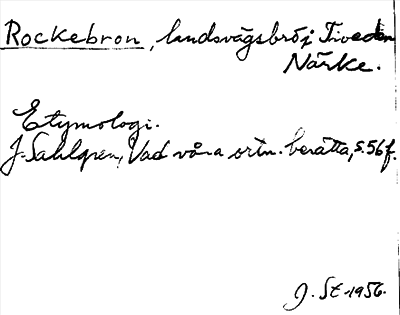 Rockebron, landsvägsbro i Tiveden
Närke.
Etymologi.
J. Sahlgren, Vad våra ortn. berätta, s. 56 f.
J. St. 1956.